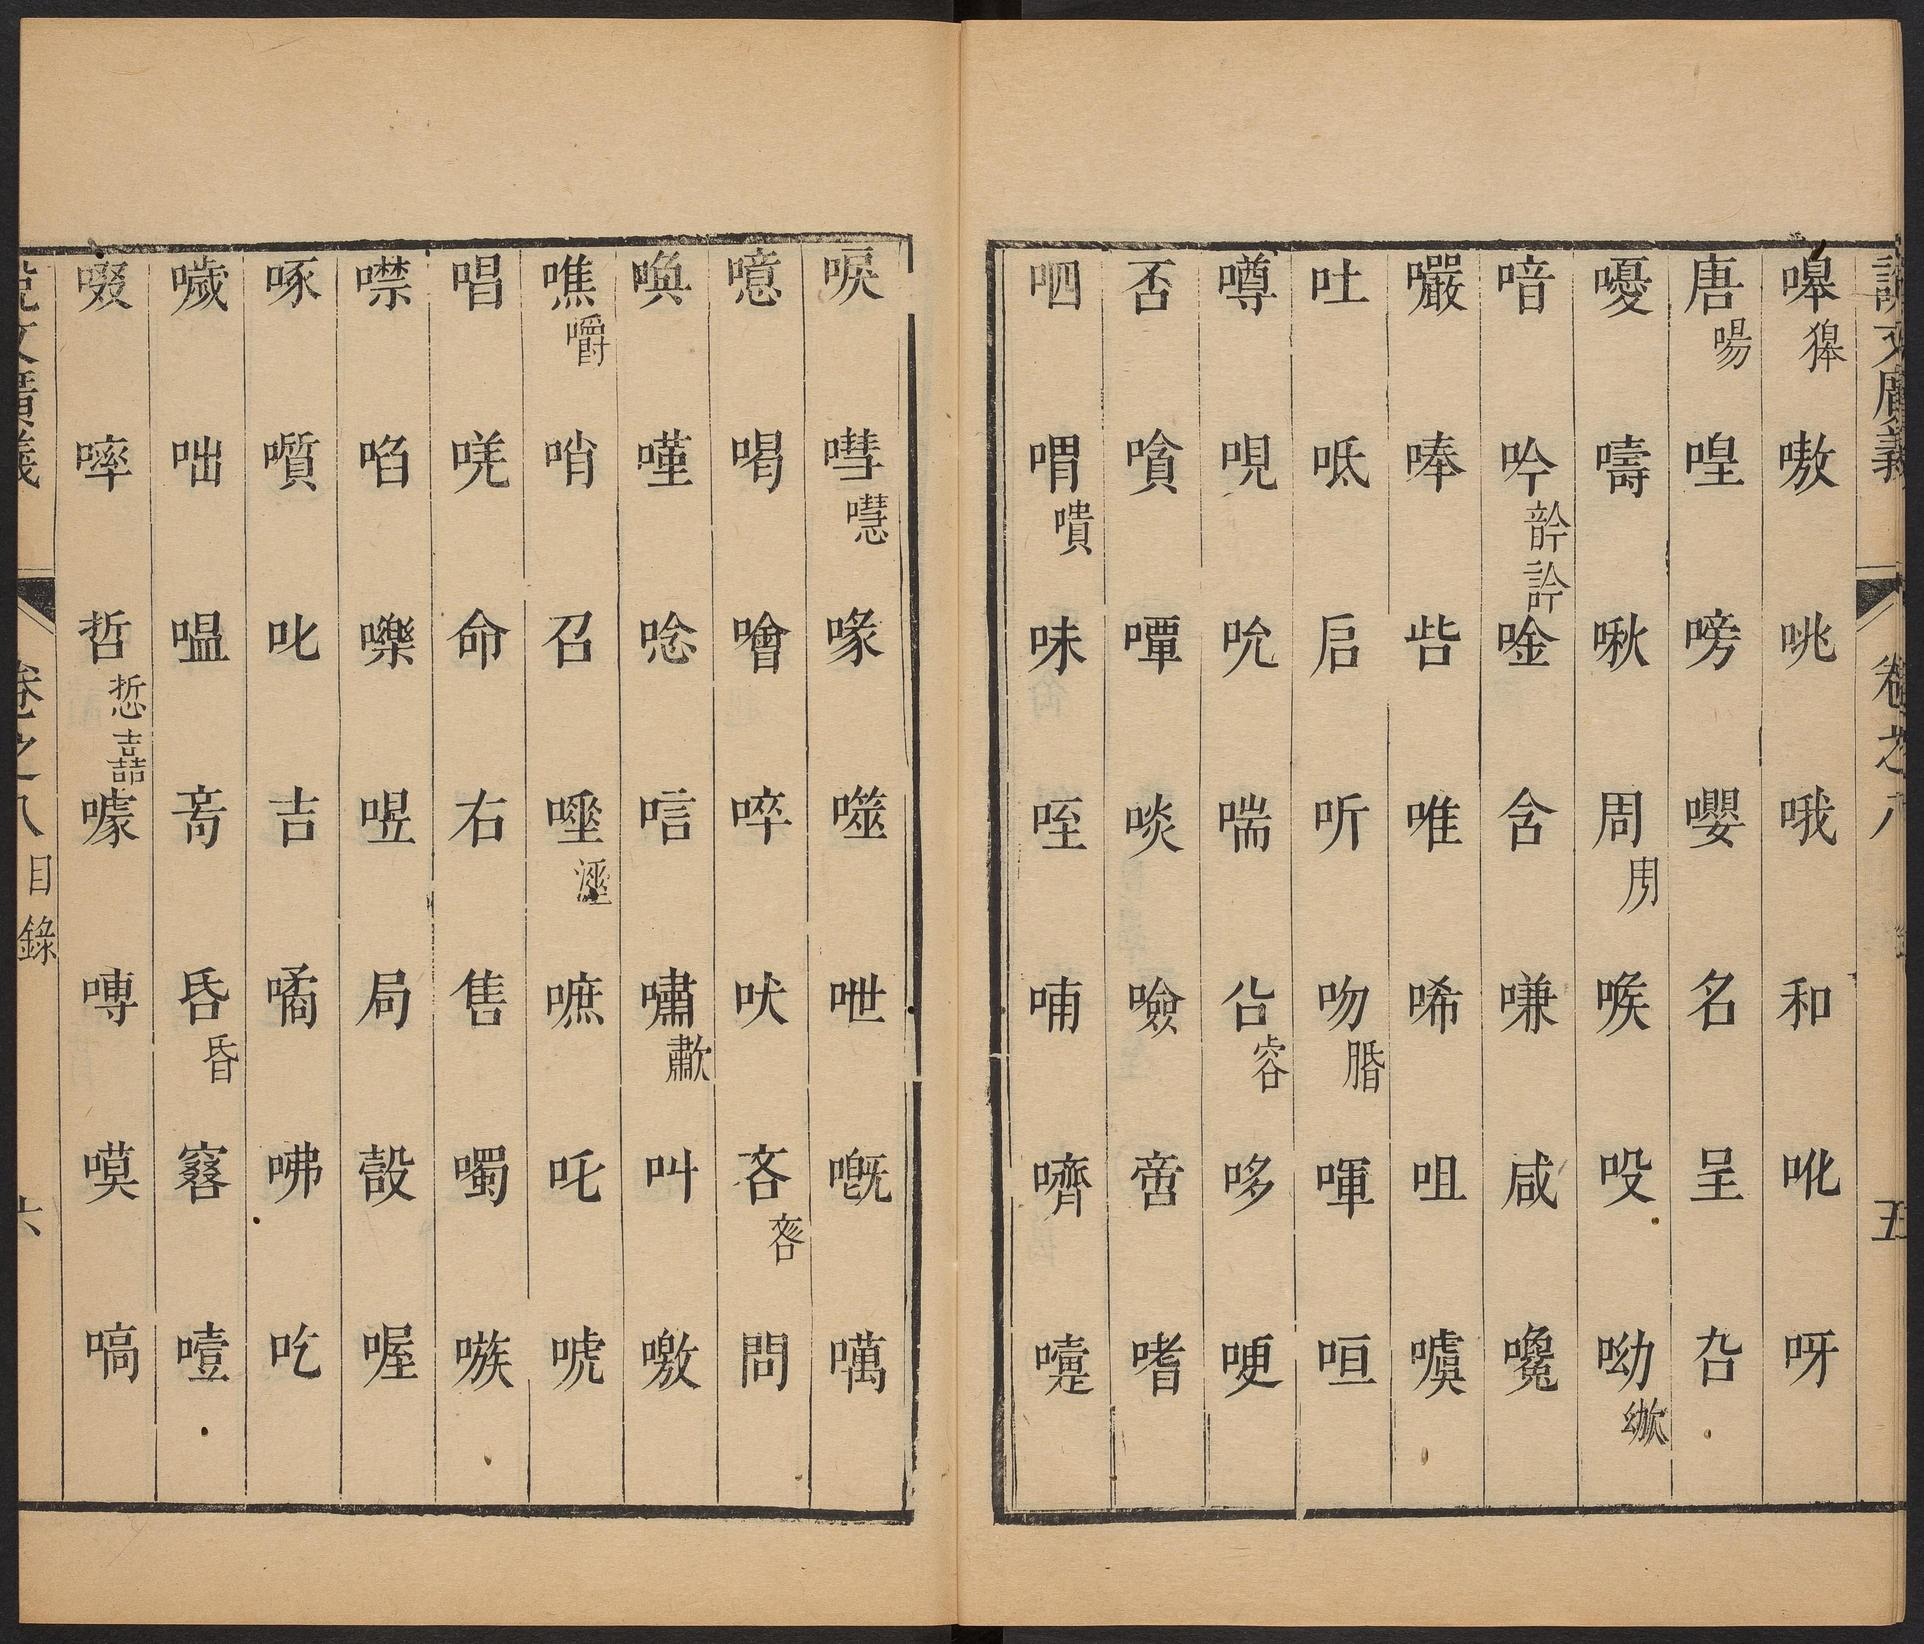 說文廣義 卷之八 五
嗥獋 嗷 咷 哦 和 吪 呀
唐啺 喤 嗙 嚶 名 呈 叴
嚘 嚋 啾 周 喉 吺 呦㕭
喑 吟䪩訡 唫 含 嗛 咸 嚵
嚴 唪 呰 唯 唏 咀 噳
吐 呧 启 听 吻脗 喗 咺
噂 哯 吮 喘 㕣容 哆 哽
否 嗿 嘾 啖 噞 啻 嗜
呬 喟嘳 味 咥 哺 嚌 嚏
唳 嘒嚖 喙 噬 呭 嘅 噧
噫 喝 噲 啐 吠 吝 問
喚 嘆 唸 唁 嘯歗 叫 噭
噍嚼 哨 召 唾涶 嗻 吒 唬
唱 唴 命 右 售 噣 嗾
噤 啗 嚛 喅 局 嗀 喔
啄 噴 叱 吉 噊 咈 吃
噦 咄 嗢 咅 昏 噎
啜 啐 哲悊嚞 噱 嘆 嗃
說文廣義 卷之八 目錄 六